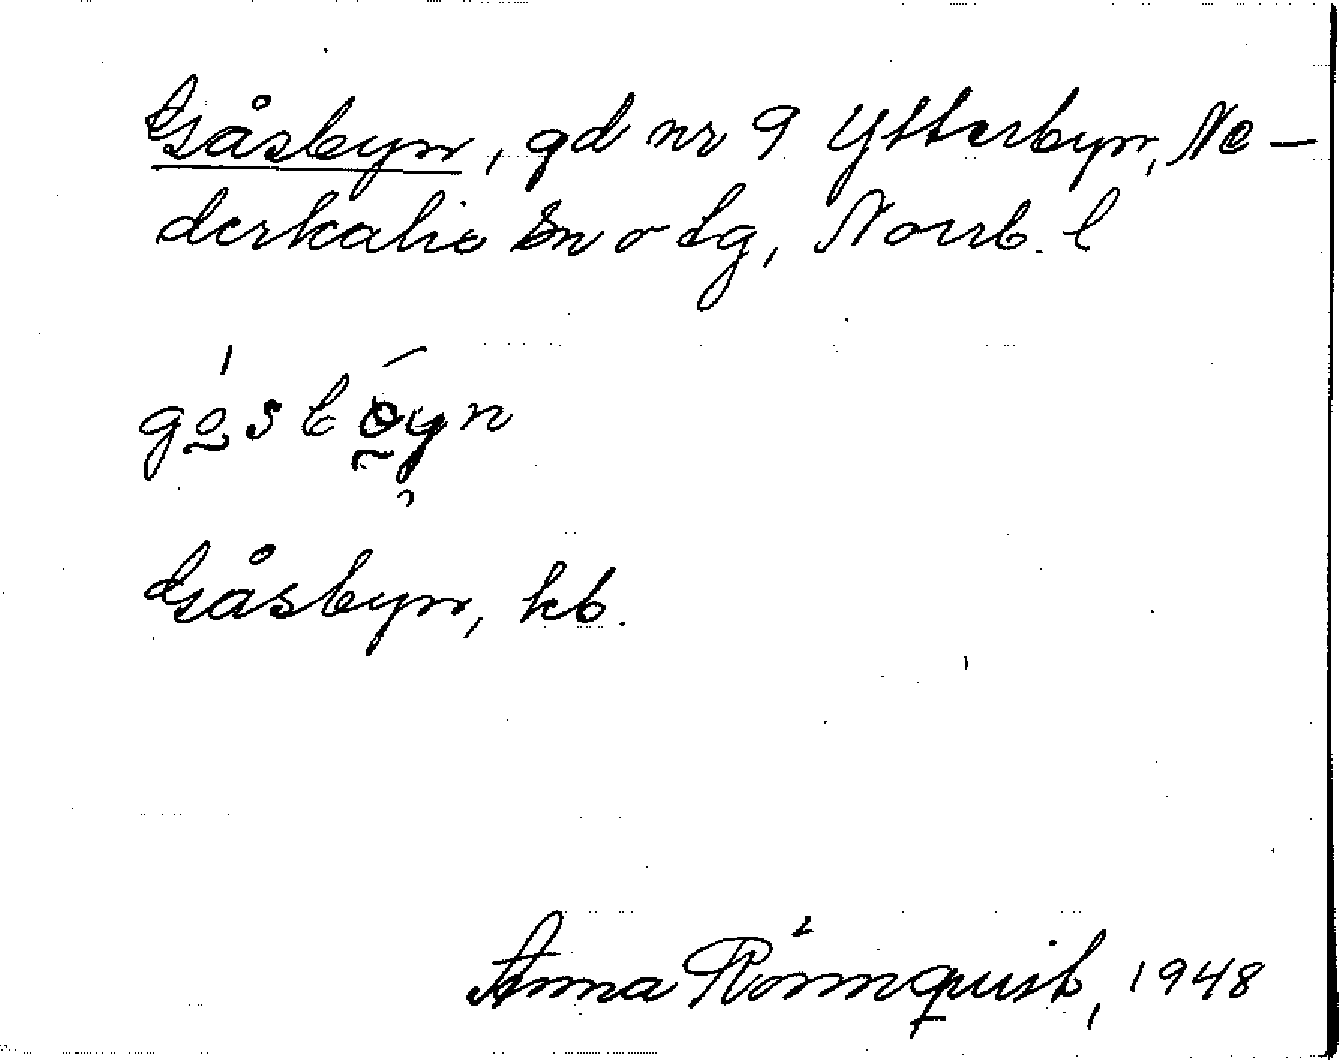 Gåsbyn, gd nr 9 Ytterbyn, Ne-
derkalix sn o tg, Norrb. l
Gåsbyn, kb.
Anna Rönnquist, 1948